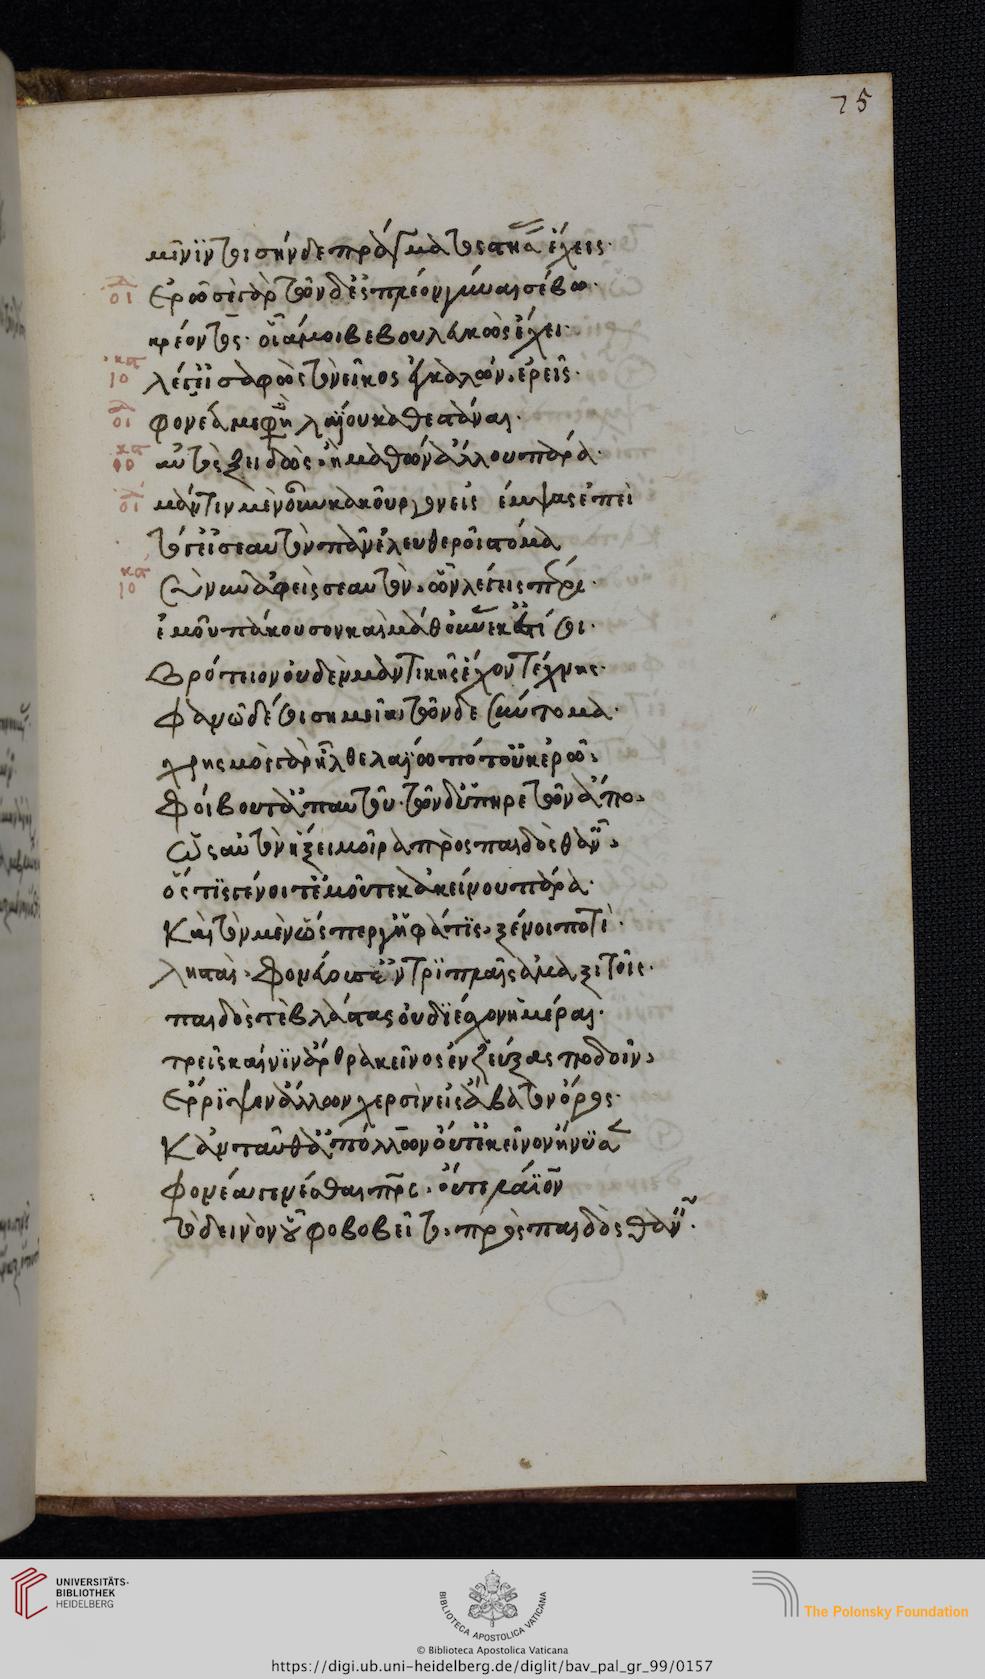 75
μῆνιν τοσήνδε πράγματος στήσας ἔχεις·
οι ἐρῶ σὲ γὰρ τῶνδ' ἐς πλέον γύναι σέβω·
κρέοντος· οἷά μοι βεβουλευκὼς ἔχει·
ιο λέγ' εἰ σαφῶς τὸ νεῖκος ἐγκαλῶν ἐρεῖς·
οι φονέα με φησὶ λαΐου καθεστάναι·
ιο αὐτὸς ξυνειδὼς ἢ μαθὼν ἄλλου πάρα·
οι μάντιν μὲν οὖν κακοῦργον εἰσπέμψας ἐπεὶ
τό γ' εἰς ἑαυτὸν πᾶν ἐλευθεροῖ στόμα
ιο σὺ νῦν ἀφεὶς σεαυτὸν ὧν λέγεις πέρι·
ἐμοῦ 'πάκουσον καὶ μάθ' οὕνεκ' ἐστί σοι·
βρότειον οὐδὲν μαντικῆς ἔχον τέχνης·
φανῶ δέ σοι σημεῖα τῶνδε σύντομα·
χρησμὸς γὰρ ἦλθε λαΐῳ ποτ' οὐκ ἐρῶ
Φοίβου γ' ἄπ' αὐτοῦ· τῶν δ' ὑπηρετῶν ἄπο
ὡς αὐτὸν ἥξει μοῖρα πρὸς παιδὸς θανεῖν
ὅστις γένοιτ' ἐμοῦ τε κἀκείνου πάρα·
Καὶ τὸν μὲν ὥσπερ γ' ἡ φάτις ξένοι ποτὲ
λῃσταὶ φονεύουσ' ἐν τριπλαῖς ἁμαξιτοῖς·
παιδὸς δὲ βλάστας οὐ διέσχον ἡμέραι·
τρεῖς καί νιν ἄρθρα κεῖνος ἐνζεύξας ποδοῖν
ἔρριψεν ἄλλων χερσὶν εἰς ἄβατον ὄρος·
Κἀνταῦθ' ἀπόλλων οὔτ' ἐκεῖνον ἤνυσε
φονέα γενέσθαι πατρός· οὔτε λάϊον
τὸ δεινὸν οὑφοβεῖτο πρὸς παιδὸς θανεῖν·
UNIVERSITÄTS-
BIBLIOTHEK
HEIDELBERG
BIBLIOTECA APOSTOLICA VATICANA
The Polonsky Foundation
© Biblioteca Apostolica Vaticana
https://digi.ub.uni-heidelberg.de/diglit/bav_pal_gr_99/0157